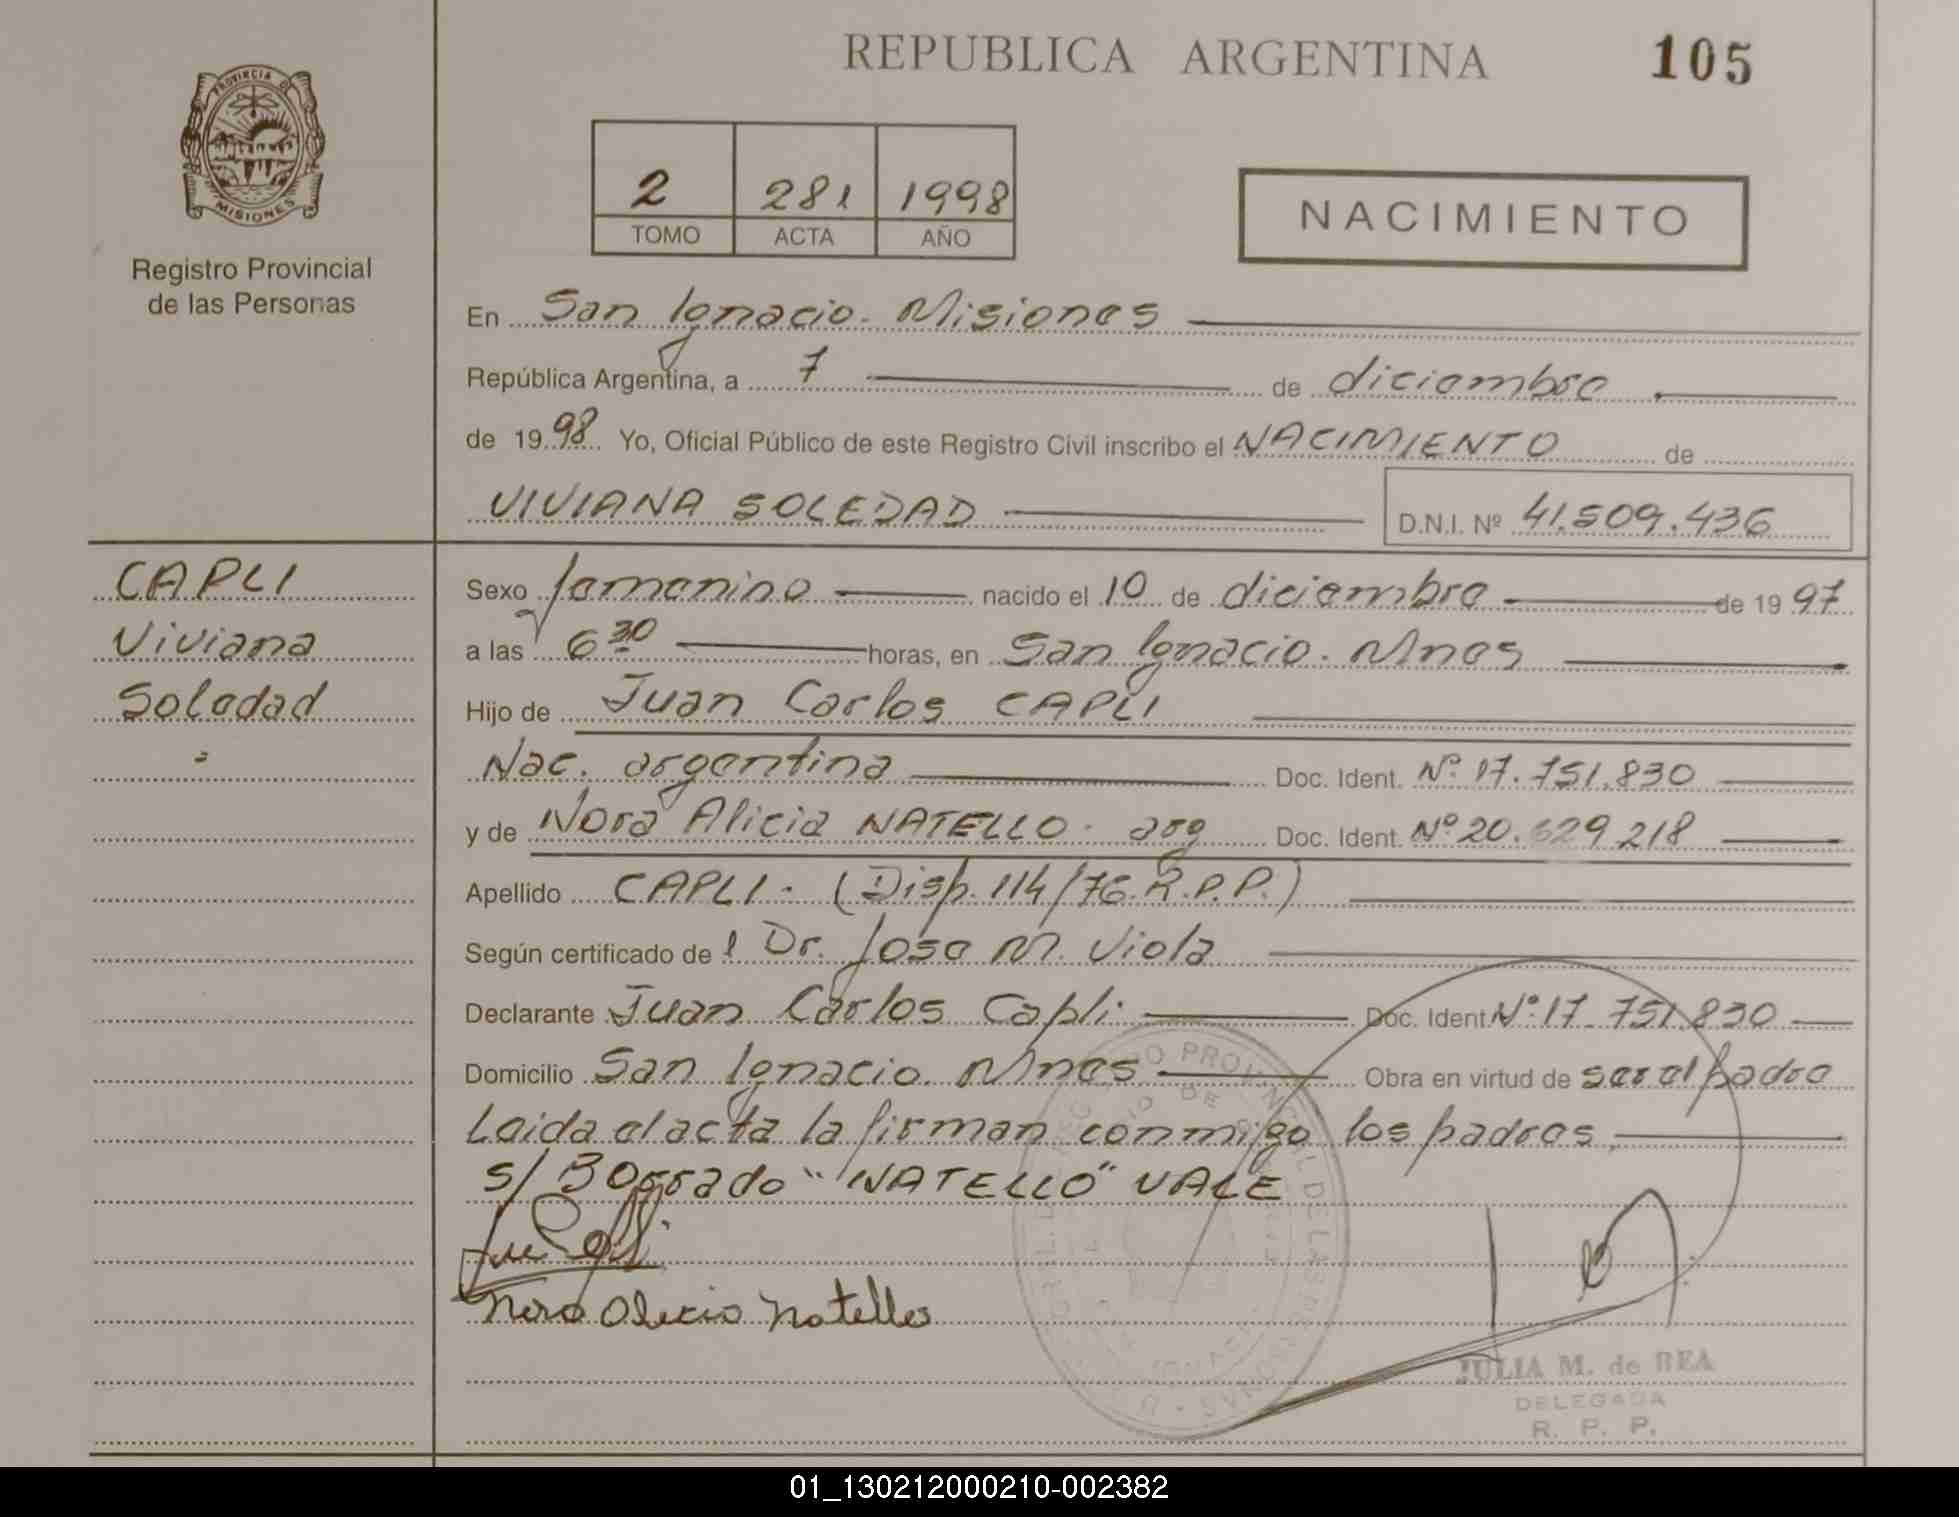 REPUBLICA ARGENTINA
105
PROVINCIA DE
MISIONES
Registro Provincial
de las Personas
2 281 1998
TOMO ACTA AÑO
NACIMIENTO
En San Ignacio. Misiones
República Argentina, a 7 de diciembre
de 1998 Yo, Oficial Público de este Registro Civil inscribo el NACIMIENTO de
VIVIANA SOLEDAD D.N.I. Nº 41.509.436
CAPLI
Viviana
Soledad
Sexo femenino nacido el 10 de diciembre de 1997
a las 6 30 horas, en San Ignacio. Mnes
Hijo de Juan Carlos CAPLI
Nac. argentina Doc. Ident. Nº 17.751.830
y de Nora Alicia NATELLO. arg Doc. Ident. Nº 20.629.218
Apellido CAPLI. (Disp. 114/76.R.P.P.)
Según certificado de l Dr. Jose M. Viola
Declarante Juan Carlos Capli Doc. Ident. Nº 17.751.830
Domicilio San Ignacio. Mnes Obra en virtud de ser el padre
Leida el acta la firman conmigo los padres
s/ Borrado "NATELLO" VALE
Nora Alicia Natello
JULIA M. de REA
DELEGADA
R. P. P.
01_130212000210-002382